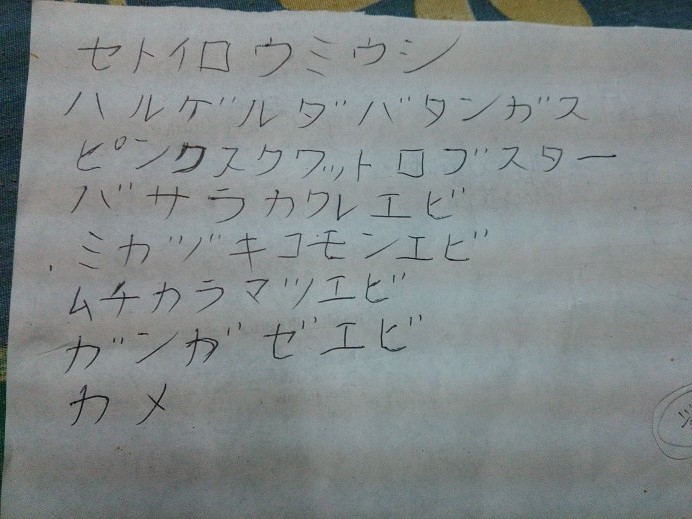 セトイロウミウシ
ハルゲルダバタンガス
ピンクスクワットロブスター
バサラカクレエビ
ミカヅキコモンエビ
ムチカラマツエビ
ガンガゼエビ
カメ